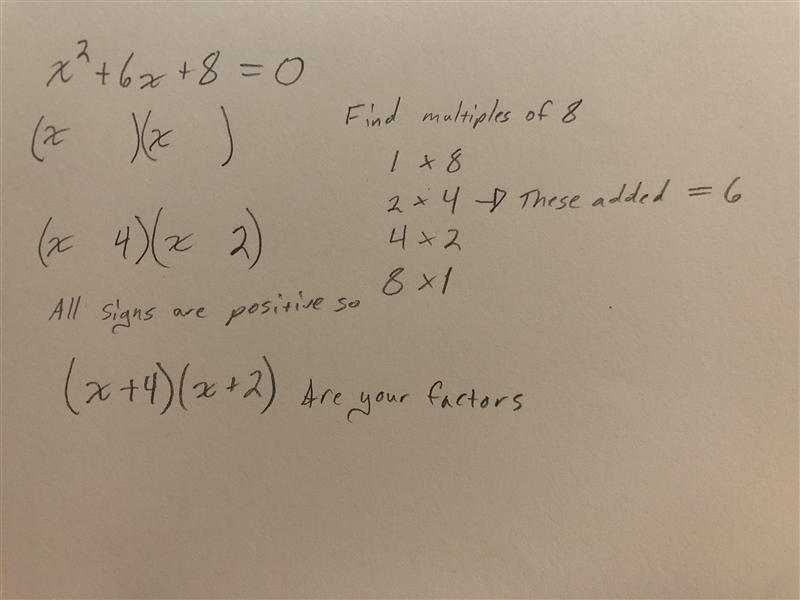 x² + 6x + 8 = 0
(x )(x )
Find multiples of 8
1 × 8
2 × 4 → These added = 6
4 × 2
8 × 1
(x 4)(x 2)
All signs are positive so
(x+4)(x+2) Are your factors